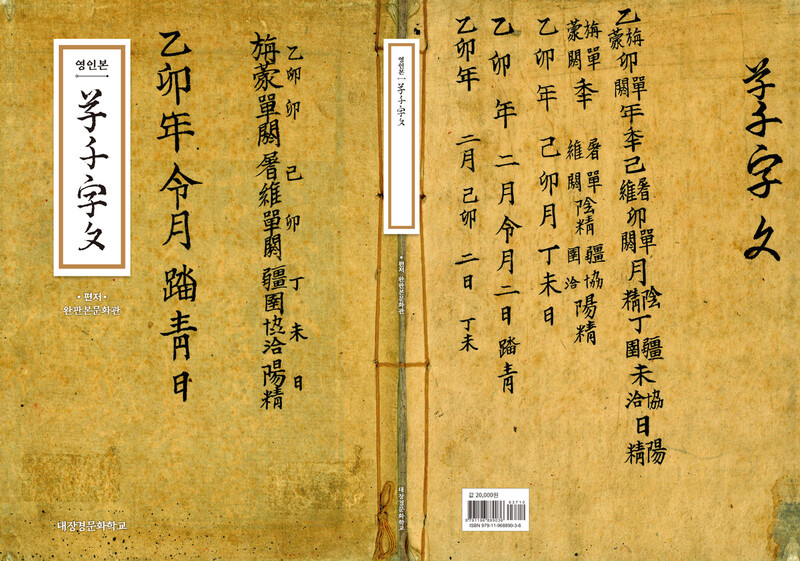 영인본
草千字文
• 편저 •
완판본문화관
乙卯年令月踏靑日
乙卯 卯 己 卯 丁 未 日
旃蒙單閼屠維單閼疆圉協洽陽精
대장경문화학교
영인본 草千字文
• 편저 완판본문화관
대장경문화학교
草千字文
乙旃蒙卯單閼年秊己屠維卯單閼月陰精丁疆圉未協洽日陽精
旃蒙單閼秊 屠維單閼陰精疆圉協洽陽精
乙卯年 己卯月丁未日
乙卯年 二月令月二日踏靑
乙卯年 二月己卯 二日 丁未
값 20,000원
03710
9791196889036
ISBN 979-11-968890-3-6